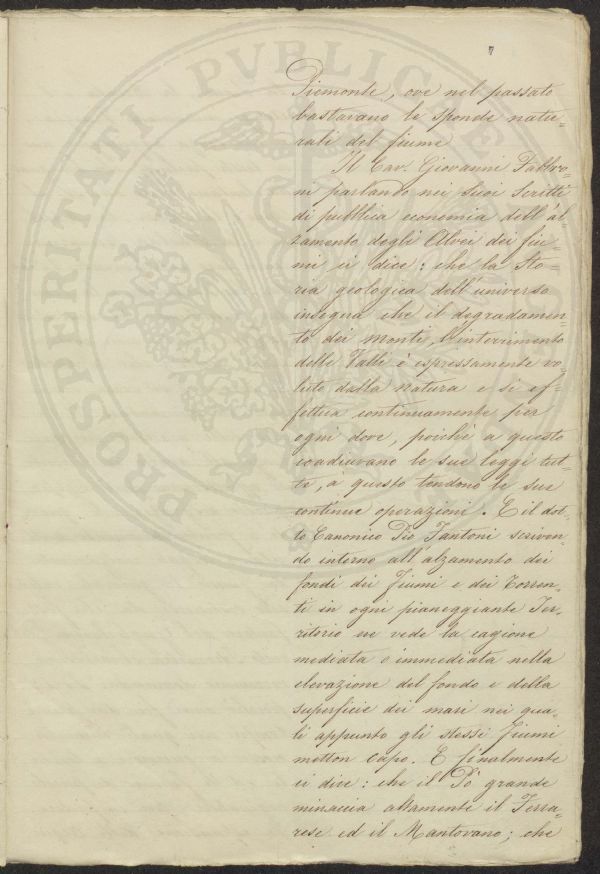 7
Piemonte, ove nel passato
bastavano le sponde natu-
rali del fiume
Il Cav. Giovanni Fabbro-
ni parlando nei suoi scritti
di pubblica economia dell'al-
zamento degli Alvei dei fiu-
mi ci dice: che la Sto-
ria geologica dell'universo
insegna che il degradamen-
to dei monti, l'interrimento
delle Valli è espressamente vo-
luto dalla natura e si ef-
fettua continuamente per
ogni dove, poichè a questo
coadiuvano le sue leggi tut-
te, a questo tendono le sue
continue operazioni. E il dot-
to Canonico Pio Fantoni scriven-
do intorno all'alzamento dei
fondi dei Fiumi e dei Torren-
ti in ogni pianeggiante Ter-
ritorio ne vede la cagione
mediata e immediata nella
elevazione del fondo e della
superficie dei mari nei qua-
li appunto gli stessi fiumi
metton capo. E finalmente
ci dice: che il Pò grande
minaccia altamente il Ferra-
rese ed il Mantovano; che
PROSPERITATI PVBLICAE